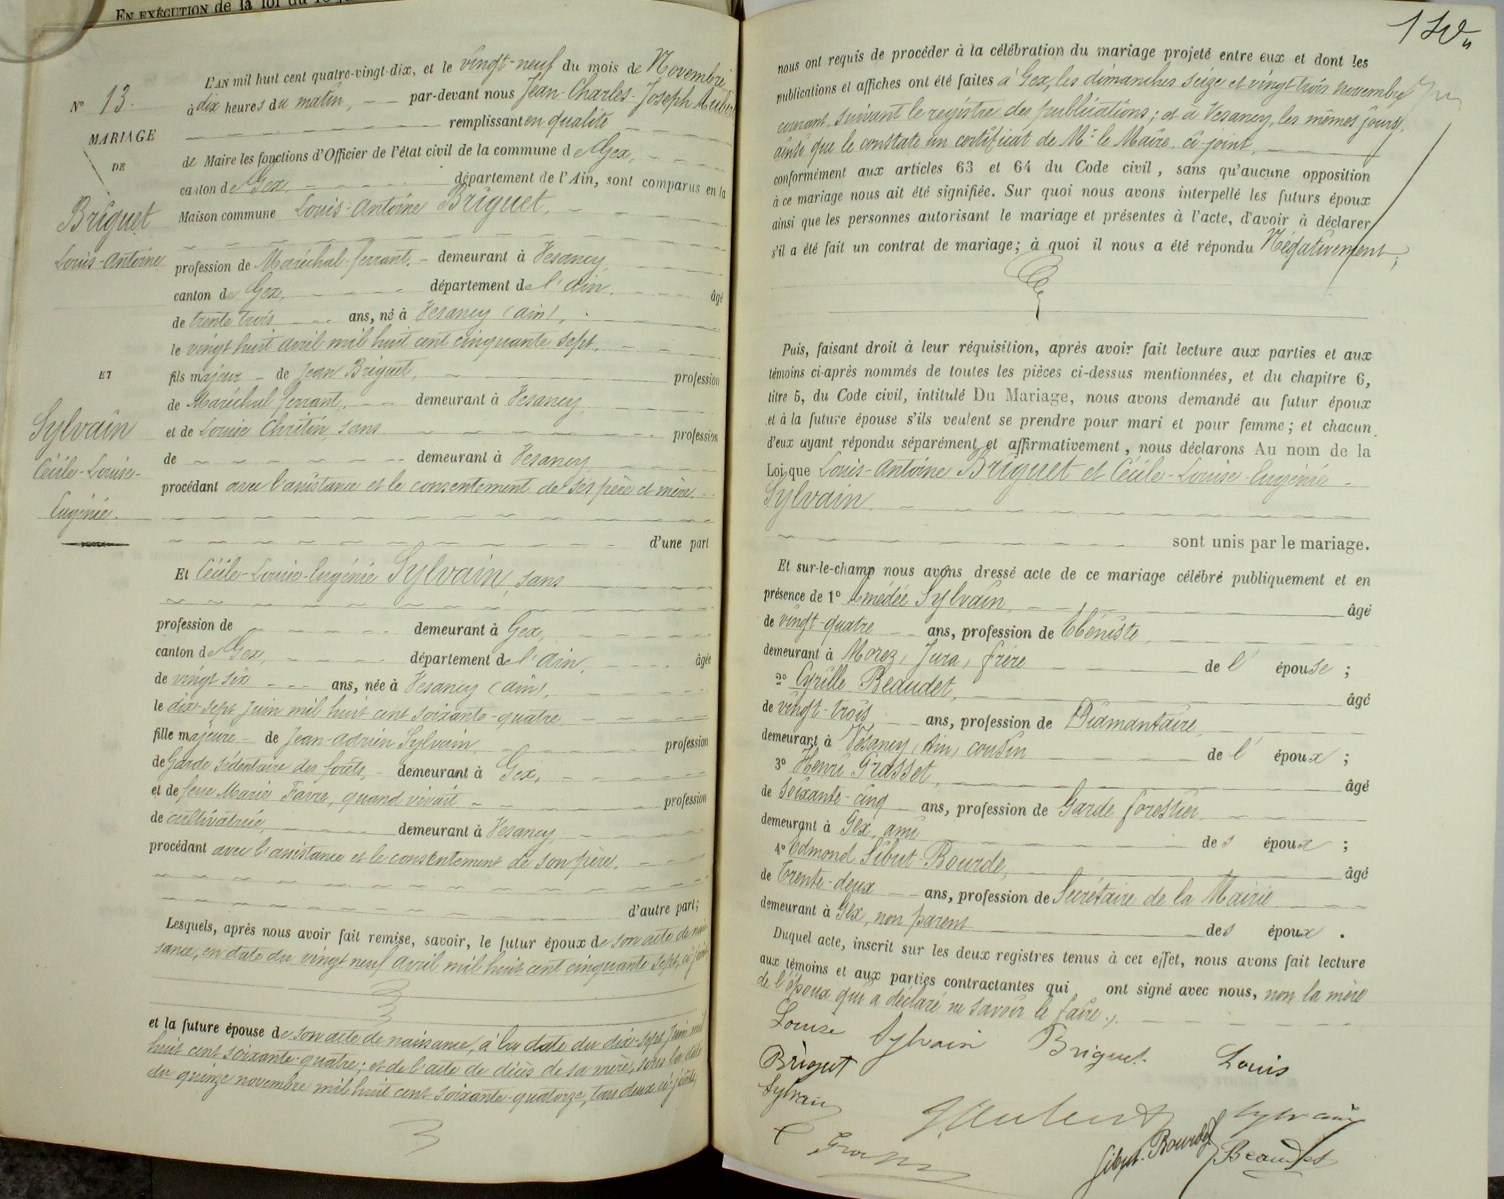 EN EXÉCUTION de la loi du
N° 13.
MARIAGE
DE
Briguet
Louis-Antoine
ET
Sylvain
Cécile-Louise-
Eugénie.
L'AN mil huit cent quatre-vingt-dix, et le vingt-neuf du mois de Novembre
à dix heures du matin, par-devant nous Jean-Charles-Joseph
remplissant en qualité
de Maire les fonctions d'Officier de l'état civil de la commune de Gex,
canton de Gex, département de l'Ain, sont comparus en la
Maison commune Louis-Antoine Briguet,
profession de Maréchal ferrant, demeurant à Vesancy
canton de Gex, département de l'Ain, âgé
de trente trois ans, né à Vesancy (Ain),
le vingt huit avril mil huit cent cinquante sept,
fils majeur de Jean Briguet, profession
de Maréchal ferrant, demeurant à Vesancy
et de Louise Chrétin, sans profession
de demeurant à Vesancy
procédant avec l'assistance et le consentement de ses père et mère.
d'une part
Et Cécile-Louise-Eugénie Sylvain, sans
profession de demeurant à Gex,
canton de Gex, département de l'Ain, âgée
de vingt six ans, née à Vesancy (Ain),
le dix-sept juin mil huit cent soixante-quatre
fille majeure de Jean-Adrien Sylvain, profession
de Garde sédentaire des forêts, demeurant à Gex,
et de feue Marie Favre, quand vivait profession
de cultivatrice, demeurant à Vesancy
procédant avec l'assistance et le consentement de son père.
d'autre part;
Lesquels, après nous avoir fait remise, savoir, le futur époux de son acte de nais
sance, en date du vingt neuf avril mil huit cent cinquante sept, ci-joint
et la future épouse de son acte de naissance, à la date du dix-sept juin mil
huit cent soixante-quatre; et de l'acte de décès de sa mère, sous la date
du quinze novembre mil huit cent soixante-quatorze, tous deux ci-joints,
nous ont requis de procéder à la célébration du mariage projeté entre eux et dont les
publications et affiches ont été faites à Gex, les dimanches seize et vingt-trois novembre
courant, suivant le registre des publications; et à Vesancy, les mêmes jours,
ainsi que le constate un certificat de Mr. le Maire, ci-joint,
conformément aux articles 63 et 64 du Code civil, sans qu'aucune opposition
à ce mariage nous ait été signifiée. Sur quoi nous avons interpellé les futurs époux
ainsi que les personnes autorisant le mariage et présentes à l'acte, d'avoir à déclarer
s'il a été fait un contrat de mariage; à quoi il nous a été répondu Négativement;
Puis, faisant droit à leur réquisition, après avoir fait lecture aux parties et aux
témoins ci-après nommés de toutes les pièces ci-dessus mentionnées, et du chapitre 6,
titre 5, du Code civil, intitulé Du Mariage, nous avons demandé au futur époux
et à la future épouse s'ils veulent se prendre pour mari et pour femme; et chacun
d'eux ayant répondu séparément et affirmativement, nous déclarons Au nom de la
Loi que Louis-Antoine Briguet et Cécile-Louise-Eugénie
Sylvain.
sont unis par le mariage.
Et sur-le-champ nous avons dressé acte de ce mariage célébré publiquement et en
présence de 1° Amédée Sylvain, âgé
de vingt-quatre ans, profession de Ebéniste
demeurant à Morez, Jura, frère de l'épouse;
2° Cyrille Beaudet, âgé
de vingt-trois, ans, profession de Diamantaire,
demeurant à Vesancy, Ain, cousin de l'époux;
3° Henri Grasset, âgé
de soixante-cinq ans, profession de Garde forestier
demeurant à Gex, ami des époux;
4° Edmond Sibut-Bourde, âgé
de trente-deux ans, profession de Secrétaire de la Mairie
demeurant à Gex, non parent des époux.
Duquel acte, inscrit sur les deux registres tenus à cet effet, nous avons fait lecture
aux témoins et aux parties contractantes qui ont signé avec nous, non la mère
de l'époux qui a déclaré ne savoir le faire.
Louise Sylvain Briguet Louis
Briguet
Sylvain
Sibut-Bourde Beaudet